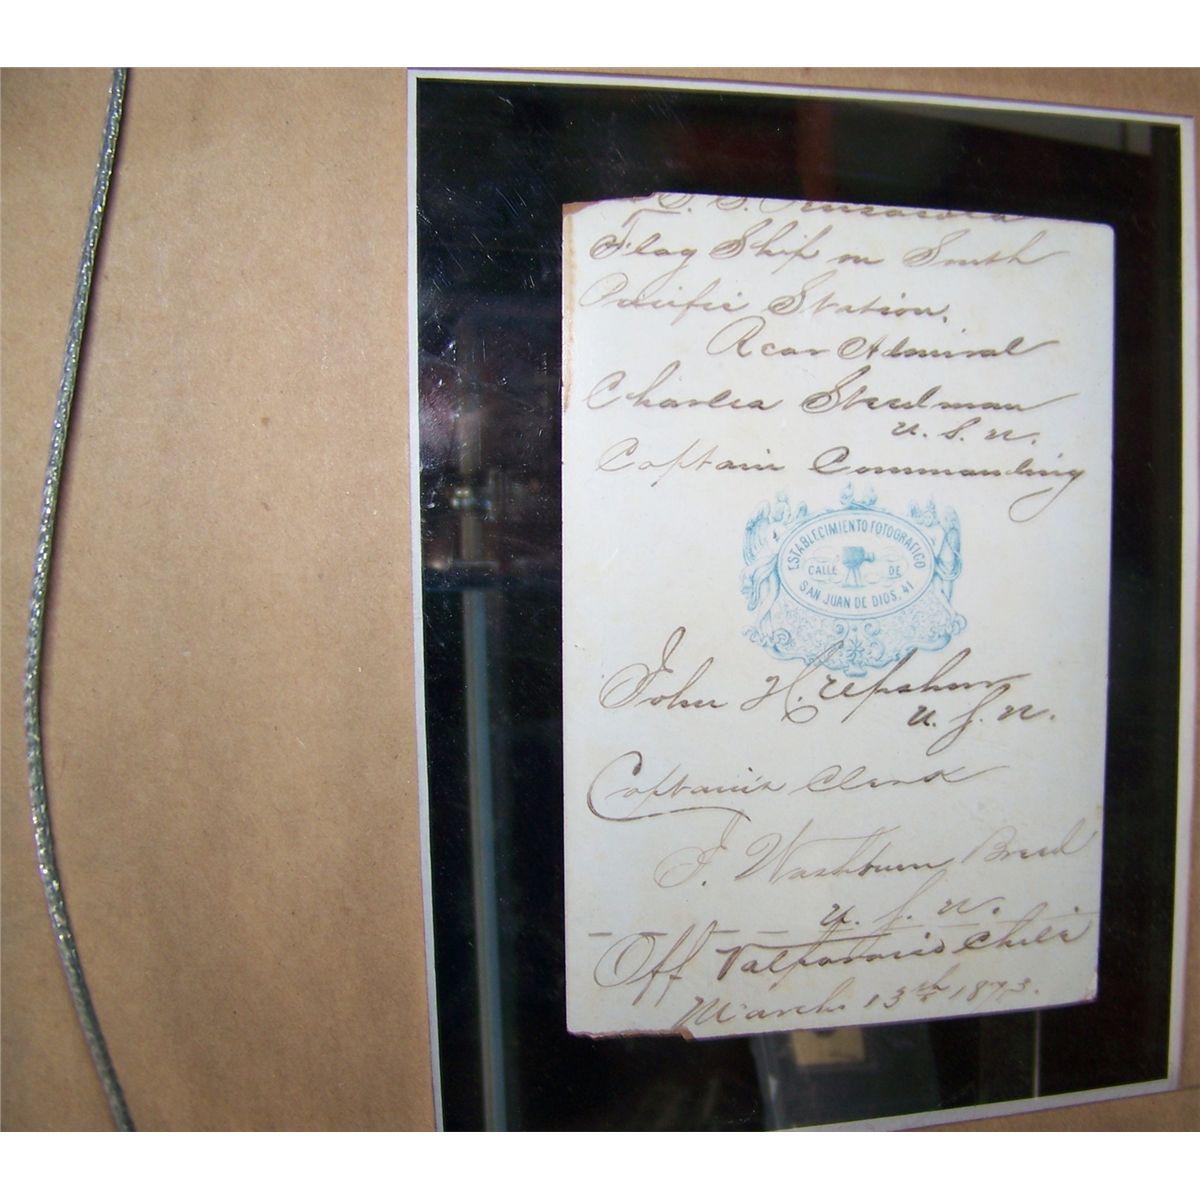 U. S. S. Pensacola
Flag Ship on South
Pacific Station.
Rear Admiral
Charles Steedman
U. S. N.
Captain Commanding
ESTABLECIMIENTO FOTOGRAFICO
CALLE DE
SAN JUAN DE DIOS, 41
John H. Upshur
U. S. N.
Captain's Clerk
J. Washburn Breed
U. S. N.
Off Valparaiso Chile
March 13th 1873.